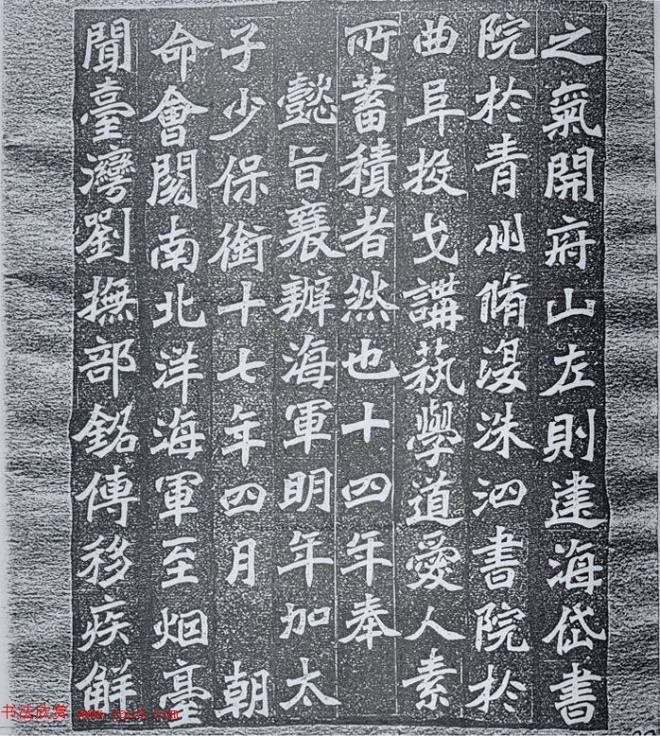 之氣開府山左則建海岱書
院於青州脩復洙泗書院於
曲阜投戈講蓺學道愛人素
所蓄積者然也十四年奉
懿旨襄辦海軍明年加太
子少保銜十七年四月 朝
命會閱南北洋海軍至烟臺
聞臺灣劉撫部銘傳移疾解
书法欣赏